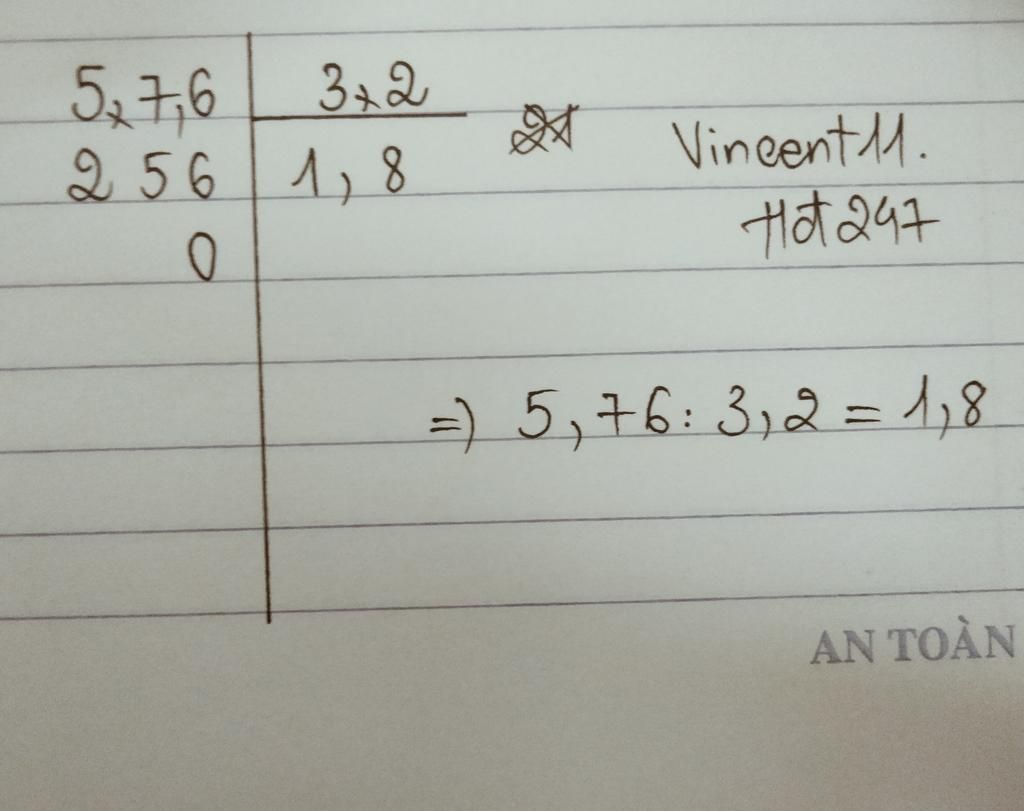 5,7,6 3,2
256 1,8
0
Vincent11.
Hot247
=) 5,76 : 3,2 = 1,8
AN TOÀN